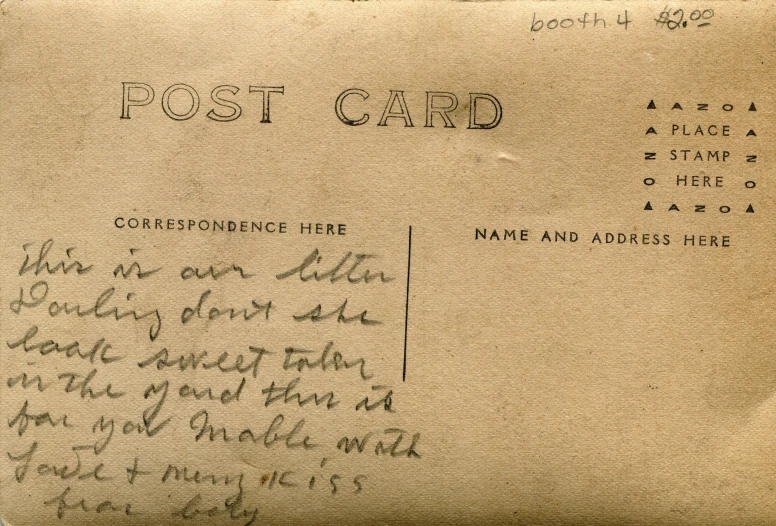 booth 4 $2.00
POST CARD
▲ A Z O ▲
A PLACE A
Z STAMP Z
O HERE O
▲ A Z O ▲
CORRESPONDENCE HERE
NAME AND ADDRESS HERE
This is our litter
Darling don't she
look sweet taken
in the yard this is
for you Mable with
Love + meny Kiss
from baby